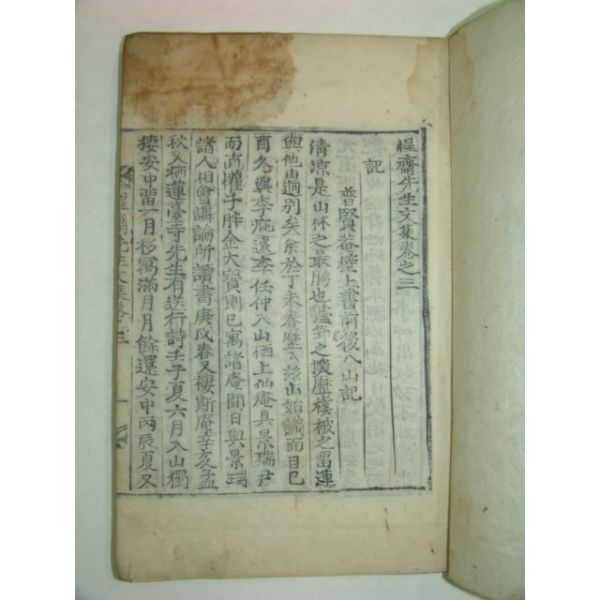 惺齋先生文集卷之三
記
普賢菴壁上書前後入山記
清凉是山林之最勝也爐峯之歷之留連
與他山逈別矣余於丁未春歷入玆山始識面目己
酉冬與李庇遠李任仲入山栖上仙庵具景瑞尹
而直權子胖金大寶則已寓諸庵間日與景瑞
諸人相會講論所讀書庚戌春又棲斯庵辛亥孟
秋入栖蓮臺寺先生有送行詩壬子夏六月入山獨
棲安中留一月移寓滿月月餘還安中丙辰夏又
惺齋先生文集卷三 一